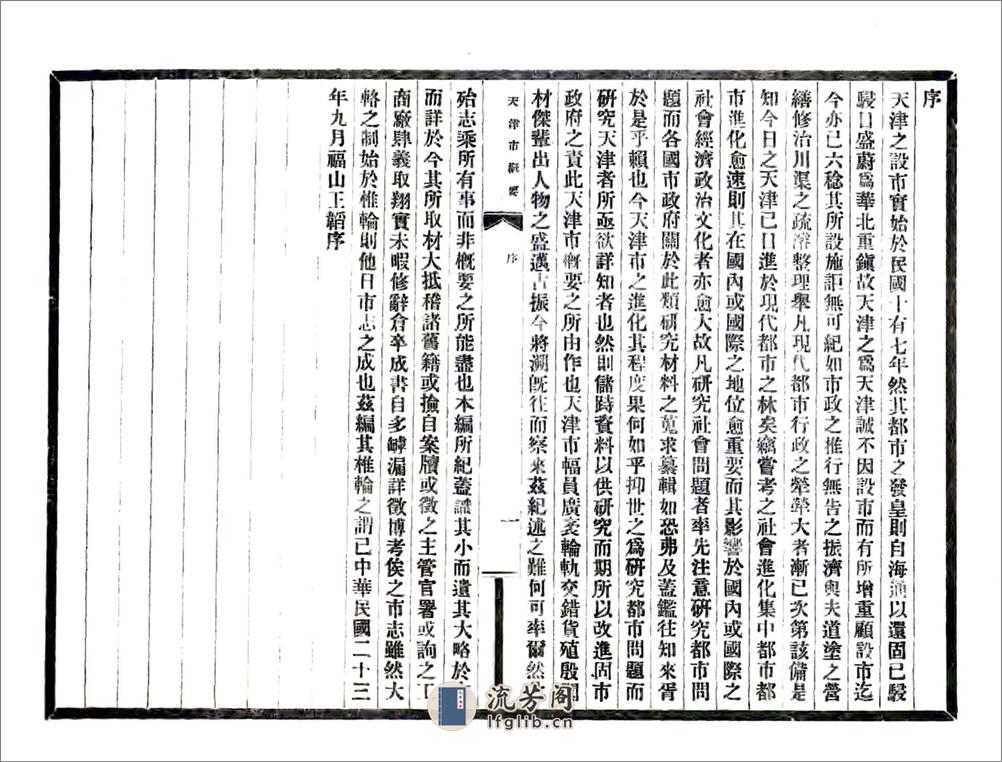 序
天津之設市實始於民國十有七年然其都市之發皇則自海通以還固已駸
駸日盛蔚爲華北重鎭故天津之爲天津誠不因設市而有所增重顧設市迄
今亦已六稔其所設施詎無可紀如市政之推行無告之振濟與夫道塗之營
繕修治川渠之疏濬整理舉凡現代都市行政之犖犖大者漸已次第該備是
知今日之天津已日進於現代都市之林矣竊嘗考之社會進化集中都市都
市進化愈速則其在國內或國際之地位愈重要而其影響於國內或國際之
社會經濟政治文化者亦愈大故凡研究社會問題者率先注意研究都市問
題而各國市政府關於此類研究材料之蒐求纂輯如恐弗及蓋鑑往知來胥
於是乎賴也今天津市之進化其程度果何如乎抑世之爲研究都市問題而
研究天津者所亟欲詳知者也然則儲跱資料以供研究而期所以改進固市
政府之責此天津市概要之所由作也天津市幅員廣袤輪軌交錯貨殖殷
材傑輩出人物之盛邁古振今將溯旣往而察來茲紀述之難何可率爾然
天津市概要
序
一
殆志乘所有事而非概要之所能盡也本編所紀蓋識其小而遺其大略於
而詳於今其所取材大抵稽諸舊籍或撿自案牘或徵之主管官署或詢之工
商廠肆義取翔實未暇修辭倉卒成書自多罅漏詳徵博考俟之市志雖然大
輅之制始於椎輪則他日市志之成也茲編其椎輪之謂已中華民國二十三
年九月福山王韜序
流芳阁
lfglib.cn